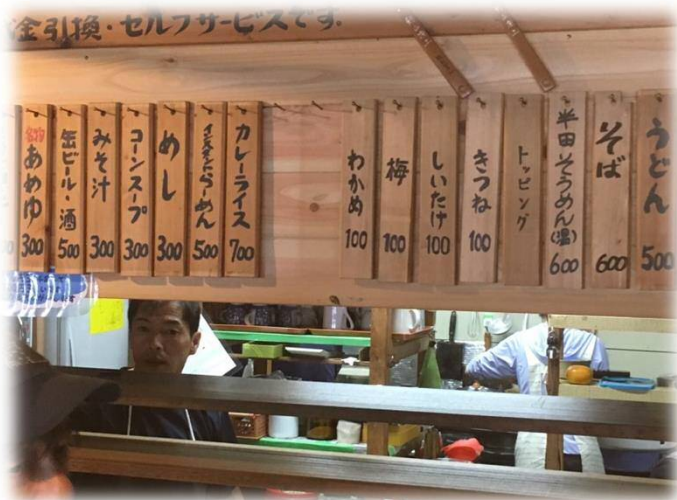 金引換・セルフサービスです.
うどん 500
そば 600
半田そうめん(温) 600
トッピング
きつね 100
しいたけ 100
梅 100
わかめ 100
カレーライス 700
インスタントらーめん 500
めし 300
コーンスープ 300
みそ汁 300
缶ビール・酒 500
あめゆ 300